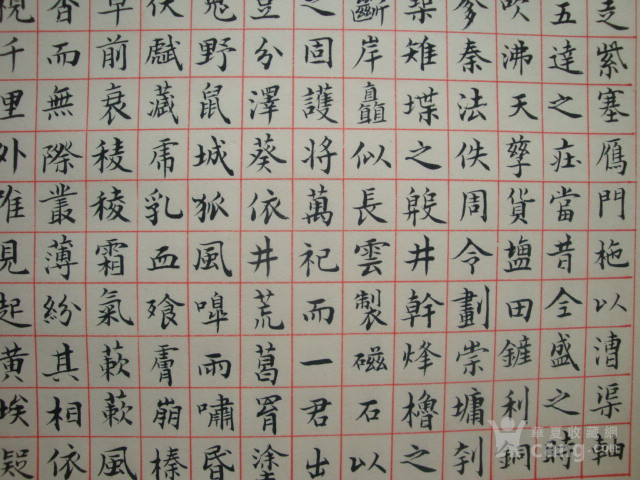 走紫塞鴈門柂以漕渠軸
五達之庄當昔全盛之時
吹沸天孳貨鹽田鏟利銅
秦法佚周令劃崇墉刳
雉堞之殷井幹烽櫓之
斷岸矗似長雲製磁石以
之固護將萬祀而一君出
豈分澤葵依井荒葛罥塗
鬼野鼠城狐風嘷雨嘯昏
伏虣藏虎乳血飧膚崩榛
早前衰稜稜霜氣蔌蔌風
杳而無際叢薄紛其相依
視千里外唯見起黃埃疑
華夏收藏網